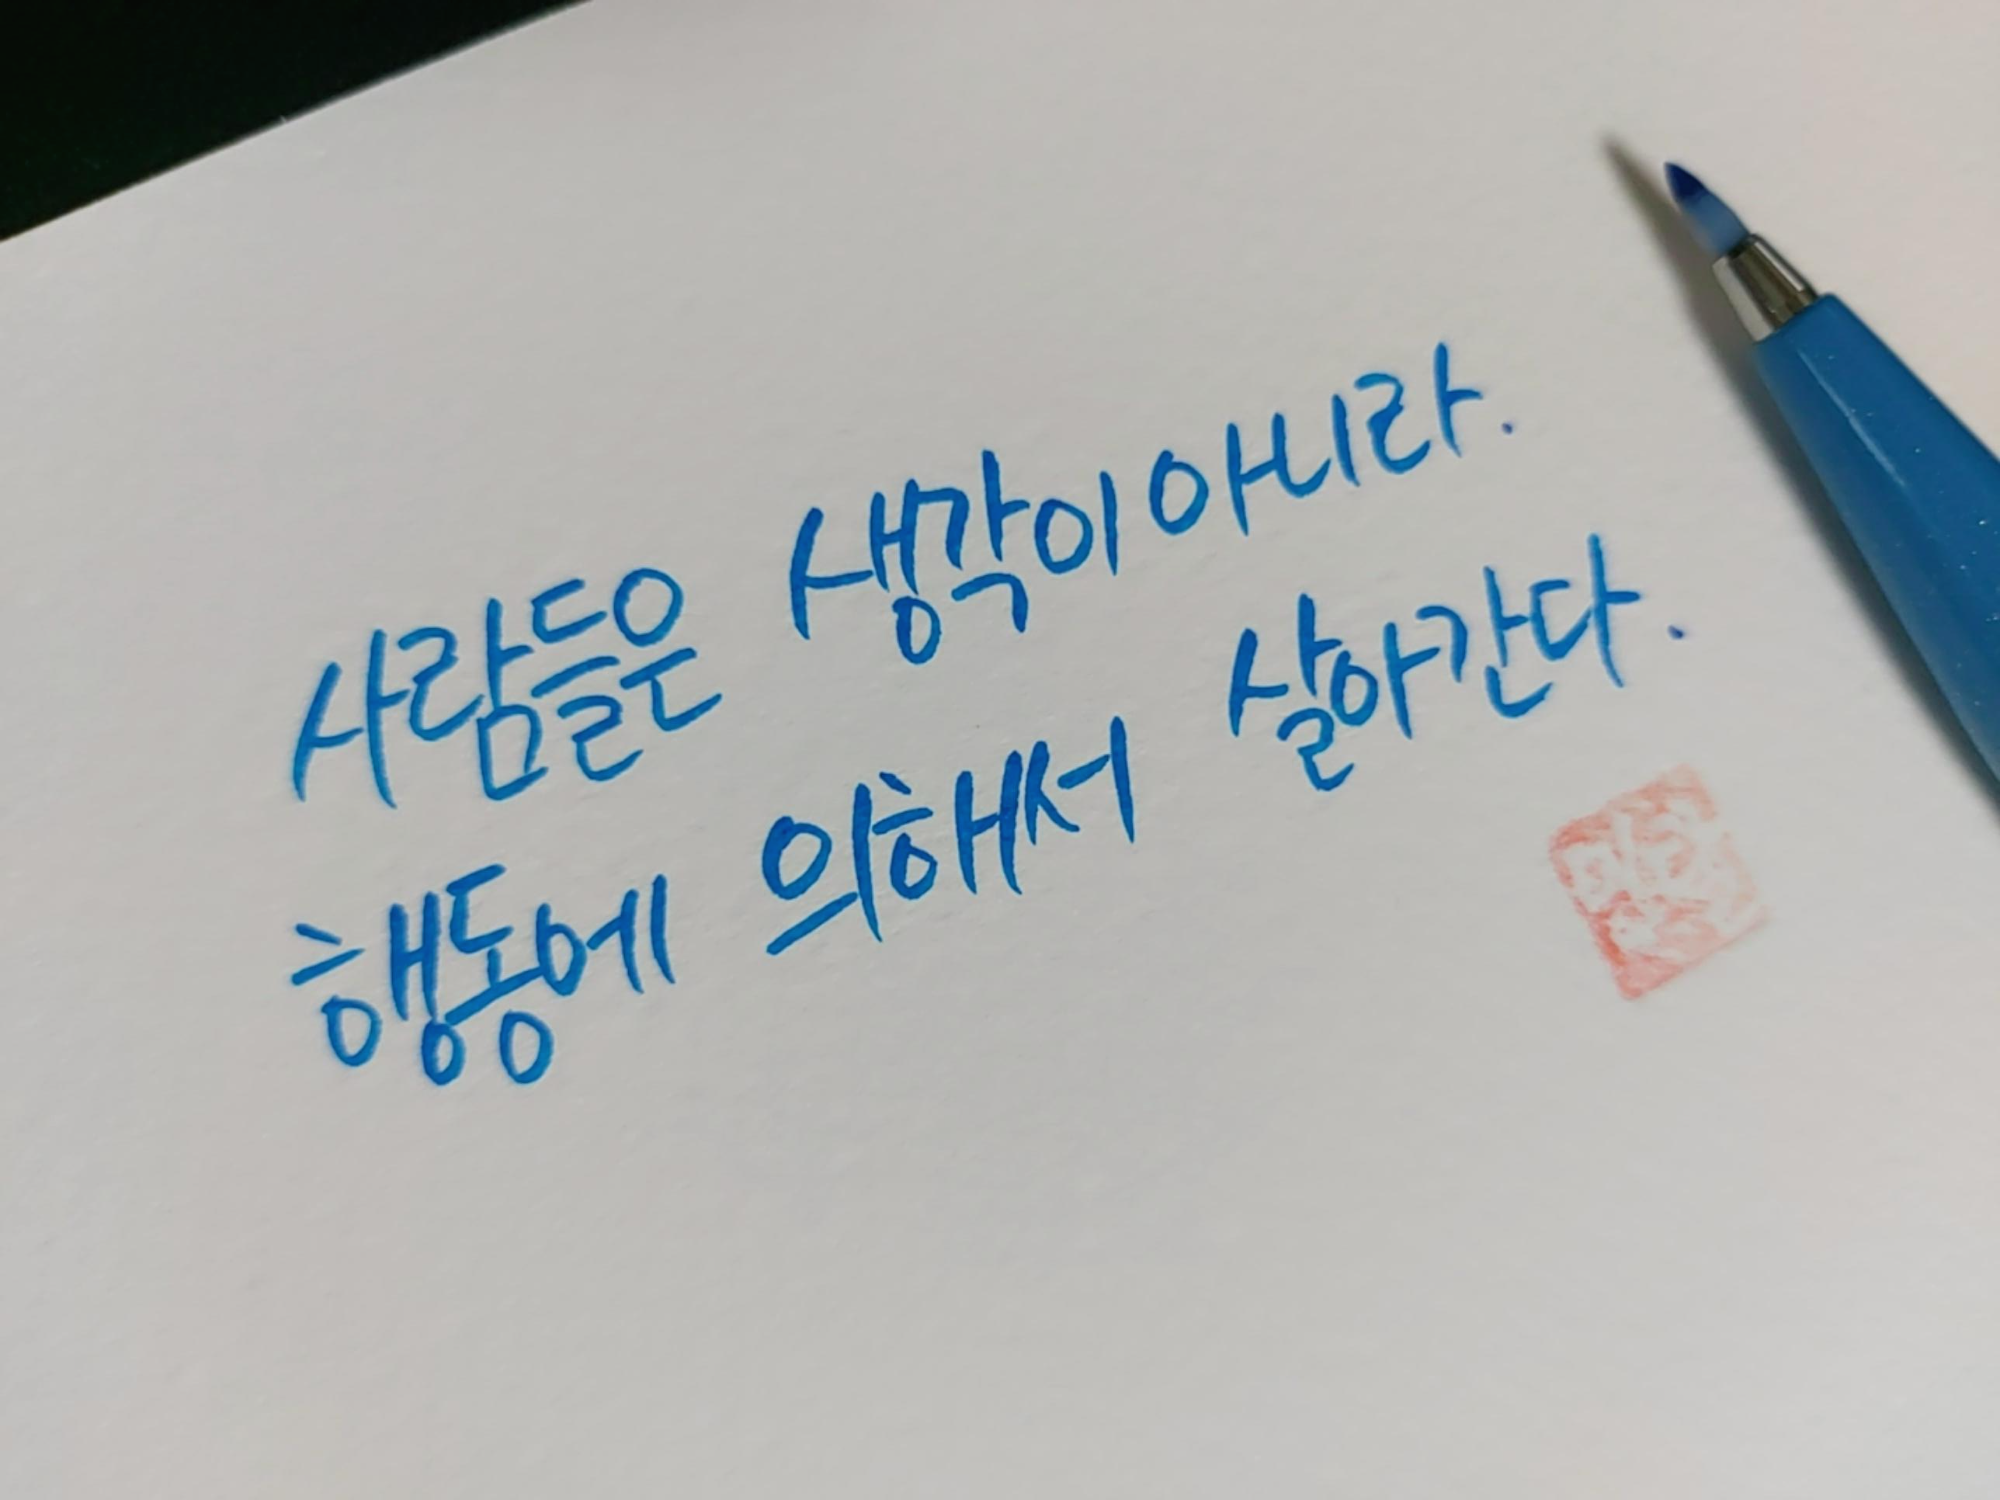 사람들은 생각이 아니라.
행동에 의해서 살아간다.